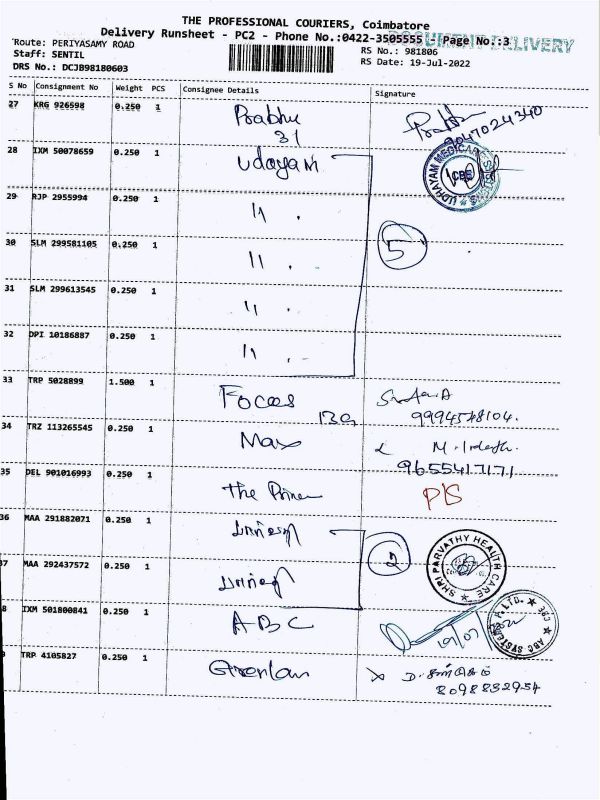 THE PROFESSIONAL COURIERS, Coimbatore
Delivery Runsheet - PC2 - Phone No.:0422-3505555 - Page No.:3
DOCUMENT DELIVERY
Route: PERIYASAMY ROAD
RS No.: 981806
Staff: SENTIL
RS Date: 19-Jul-2022
DRS No.: DCJB98180603
S No Consignment No Weight PCS Consignee Details Signature
27 KRG 926598 0.250 1 Prabhu
31
9047024340
28 IXM 50078659 0.250 1 Udayam
UDHAYAM MEDICARE
CBE
29 RJP 2955994 0.250 1 "
30 SLM 299581105 0.250 1 "
5
31 SLM 299613545 0.250 1 "
32 DPI 10186887 0.250 1 "
33 TRP 5028899 1.500 1 Focas
9994548104.
34 TRZ 113265545 0.250 1 Max
9655417171
35 DEL 901016993 0.250 1 The
P/S
36 MAA 291882071 0.250 1
2
SHRI PARVATHY HEALTH CARE
7 MAA 292437572 0.250 1
8 IXM 501800841 0.250 1 ABC
ABC SYSTEMS P. LTD. 383
TRP 4105827 0.250 1 Greenlan
8098832954